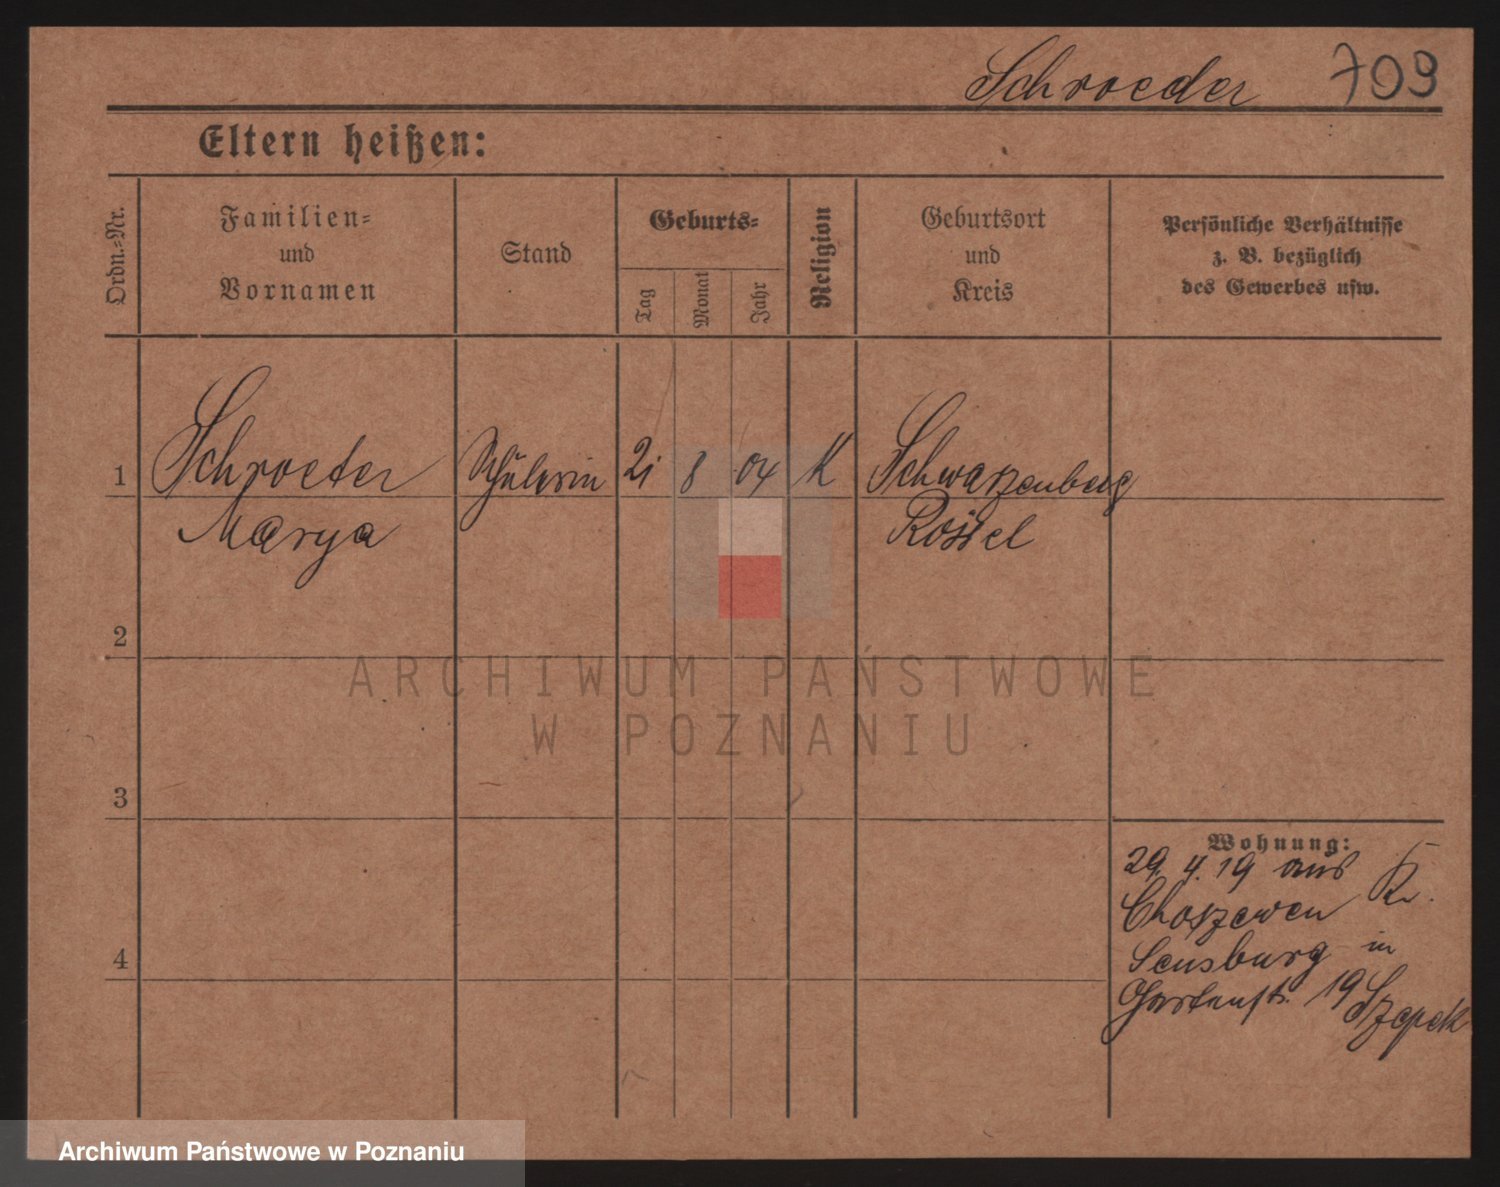 Schroeder 709
Eltern heißen:
Ordn.-Nr.
Familien-
und
Vornamen
Stand
Geburts-
Tag
Monat
Jahr
Religion
Geburtsort
und
Kreis
Persönliche Verhältnisse
z. B. bezüglich
des Gewerbes usw.
1 Schroeter Schülerin 21 8 04 K Schwarzenberg
Marya Rössel
2
3
4
Wohnung:
29. 4. 19 aus
Choszewen Kr.
Sensburg in
Gartenstr. 19
Szepek
ARCHIWUM PAŃSTWOWE
W POZNANIU
Archiwum Państwowe w Poznaniu